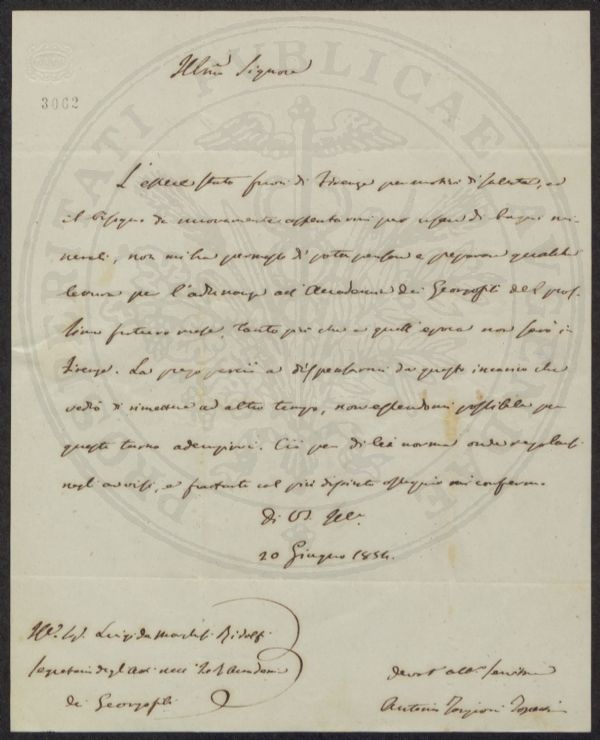 Illmo Signore
3062
L'essere stato fuori di Firenze per motivi di salute, ed
il bisogno di nuovamente assentarmi per usare di bagni mi-
nerali, non mi ha permesso di poter pensare e preparare qualche
lettura per l'adunanza dell'Accademia dei Georgofili del pros-
simo futuro mese, tanto più che a quell'epoca non sarò in
Firenze. La prego perciò a dispensarmi da questo incarico che
vedrò di rimettere ad altro tempo, non essendomi possibile per
questo turno adempirvi. Ciò per di lei norma onde regolarsi
negli avvisi, e frattanto col più distinto ossequio mi confermo
di VS. Illa.
20 Giugno 1854.
Illo. Sigr. Luigi dei Marchesi Ridolfi
Segretario degli Atti nell' I e R Accademia
dei Georgofili
devot. obb. servitore
Antonio Targioni Tozzetti
PROSPERITATI PUBLICAE AUGENDAE